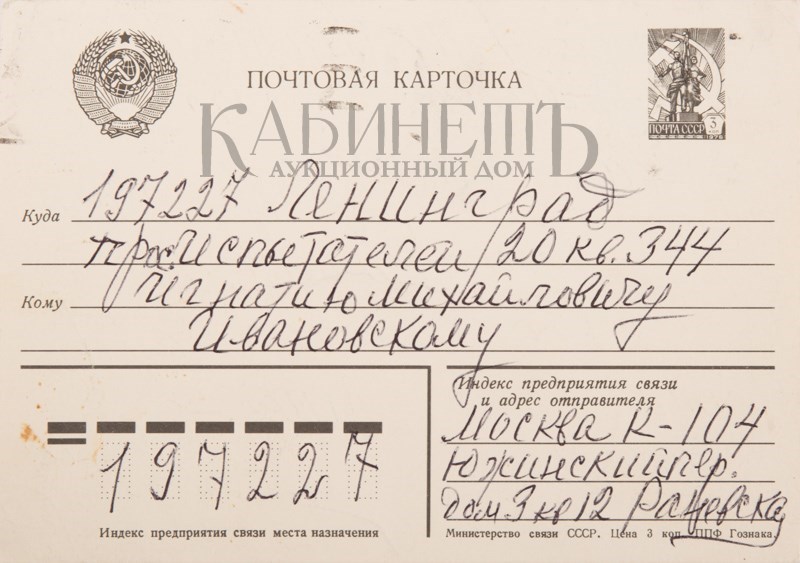 ПОЧТОВАЯ КАРТОЧКА
КАБИНЕТЪ
АУКЦИОННЫЙ ДОМ
ПОЧТА СССР 3 1976
Куда 197227 Ленинград
прос. Испытателей 20 кв. 344
Кому Игнатию Михайловичу
Ивановскому
Индекс предприятия связи
и адрес отправителя
Москва К-104
Южинский пер.
дом 3 кв 12 Раневска
197227
Индекс предприятия связи места назначения
Министерство связи СССР. Цена 3 коп. ППФ Гознака.